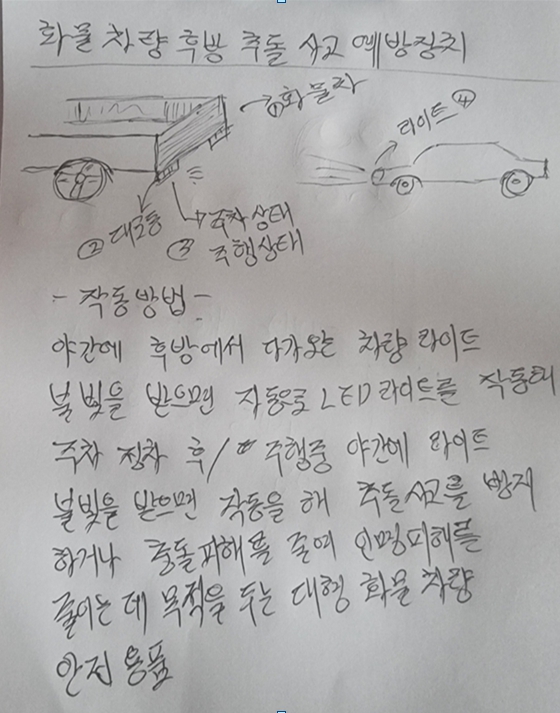 화물 차량 후방 추돌 사고 예방장치
① 화물차
라이트 ④
② 대로등
③ 주차상태
주행상태
- 작동방법 -
야간에 후방에서 다가오는 차량 라이트
불빛을 받으면 자동으로 LED라이트를 작동해
주차 정차 후/ 주행중 야간에 라이트
불빛을 받으면 작동을 해 추돌사고를 방지
하거나 충돌피해를 줄여 인명피해를
줄이는 데 목적을 두는 대형 화물 차량
안전 용품